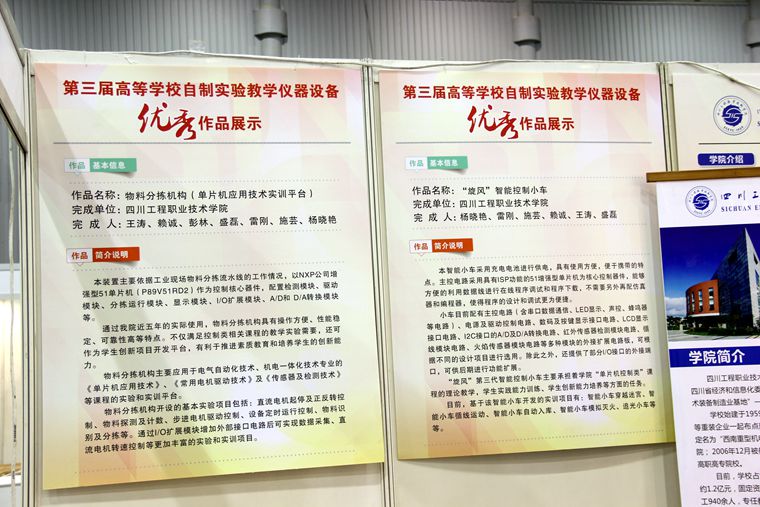 第三届高等学校自制实验教学仪器设备
优秀作品展示
作品 基本信息
作品名称：物料分拣机构（单片机应用技术实训平台）
完成单位：四川工程职业技术学院
完 成 人：王涛、赖诚、彭林、盛磊、雷刚、施芸、杨晓艳
作品 简介说明
本装置主要依据工业现场物料分拣流水线的工作情况，以NXP公司增
强型51单片机（P89V51RD2）作为控制核心器件，配置检测模块、驱动
模块、分拣运行模块、显示模块、I/O扩展模块、A/D和D/A转换模块
等。
通过我院近五年的实际使用，物料分拣机构具有操作方便、性能稳
定、可靠性高等特点。不仅满足控制类相关课程的教学实验需要，还可
作为学生创新项目开发平台，有利于推进素质教育和培养学生的创新能
力。
物料分拣机构主要应用于电气自动化技术、机电一体化技术专业的
《单片机应用技术》、《常用电机驱动技术》及《传感器及检测技术》
等课程的实验和实训平台。
物料分拣机构开设的基本实验项目包括：直流电机起停及正反转控
制、物料探测及计数、步进电机驱动控制、设备定时运行控制、物料识
别及分拣等。通过I/O扩展模块增加外部接口电路后可实现数据采集、直
流电机转速控制等更加丰富的实验和实训项目。
第三届高等学校自制实验教学仪器设备
优秀作品展示
作品 基本信息
作品名称：“旋风”智能控制小车
完成单位：四川工程职业技术学院
完 成 人：杨晓艳、雷刚、施芸、赖诚、王涛、盛磊
作品 简介说明
本智能小车采用充电电池进行供电，具有使用方便，便于携带的特
点。主控电路采用具有ISP功能的51增强型单片机为核心控制器件，能够
方便的利用数据线进行在线程序调试和程序下载，不需要另外再配仿真
器和编程器，使得程序的设计和调试更为便捷。
小车目前配有主控电路（含串口数据通信、LED显示、声控、蜂鸣器
等电路）、电源及驱动控制电路、数码及按键显示接口电路、LCD显示
接口电路、I2C接口的A/D及D/A转换电路、红外传感器检测模块电路、循
线模块电路、火焰传感器模块电路等多种模块的外接扩展电路板，可根
据不同的设计项目进行选用。除此之外，还提供了部分I/O接口的外接端
口，可供后期进行功能扩展。
“旋风”第三代智能控制小车主要承担教学院“单片机控制类”课
程的理论教学，学生实践能力训练、学生创新能力培养等方面的任务。
目前，基于该智能小车开发的实训项目有：智能小车穿越迷宫、智
能小车循线运动、智能小车自动入库、智能小车模拟灭火、追光小车等
等。
学院介绍
四 川 工
SICHUAN E
学院简介
四川工程职业技术
四川省经济和信息化委
术装备制造业基地”—
学校始建于1959
等重装企业一起布点
定名为“西南重型机
院；2006年12月被
高职高专院校。
目前，学校占
约1.2亿元，固定资
工940余人，专任教